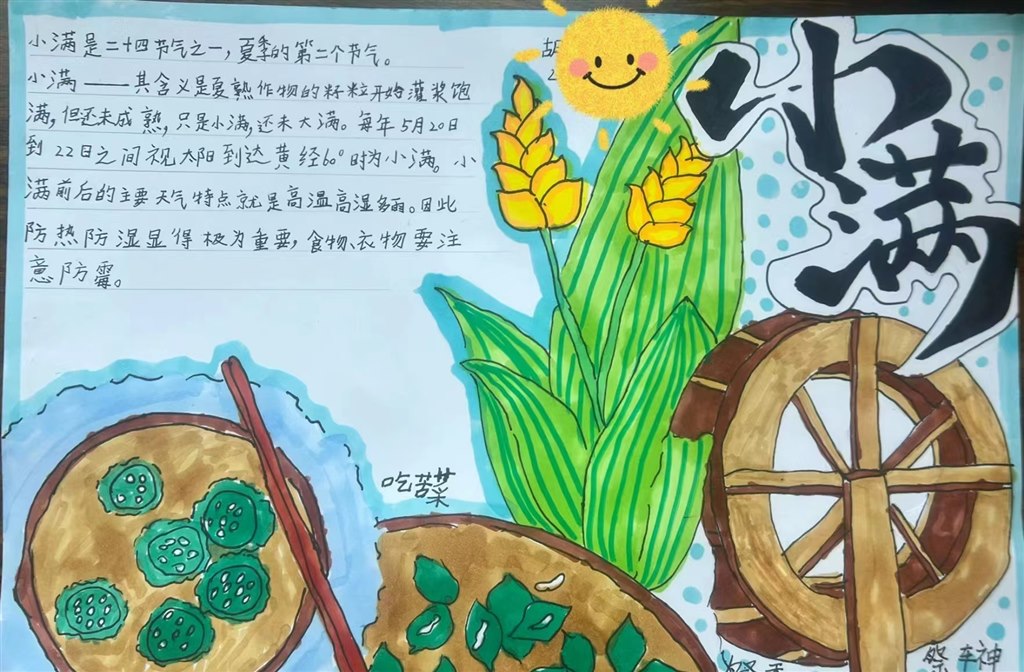 小满是二十四节气之一，夏季的第二个节气。
小满——其含义是夏熟作物的籽粒开始灌浆饱
满，但还未成熟，只是小满，还未大满。每年5月20日
到22日之间视太阳到达黄经60°时为小满。小
满前后的主要天气特点就是高温高湿多雨。因此
防热防湿显得极为重要，食物、衣物要注
意防霉。
胡
2
小满
吃苦菜
祭车神